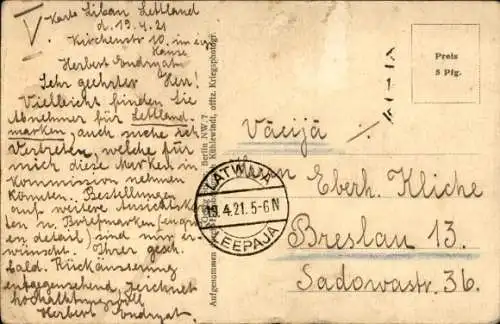 V Karte Libau Lettland
d. 19.4.21
Kirchenstr 10. im eig.
Hause
Herbert Endryat
Sehr geehrter Herr!
Vielleicht finden Sie
Abnehmer für Lettland-
marken, auch suche ich
Vertreter, welche für
mich diese Marken in
Kommission nehmen
könnten. Bestellungen
auf weitere Ansichtskar
ten u. Briefmarken en gros
en detail sind mir er-
wünscht. Ihrer gesch.
bald. Rückäusserung
entgegensehend, zeichnet
hochachtungsvoll
Herbert Endryat.
Berlin NW. 7
Kühlewindt, offiz. Kriegsphotogr.
Aufgenommen
Preis
5 Pfg.
Vācijā
LATWIJA
19.4.21.5-6 N
LEEPAJA
Herrn Eberh. Kliche
Breslau 13.
Sadowastr. 36.